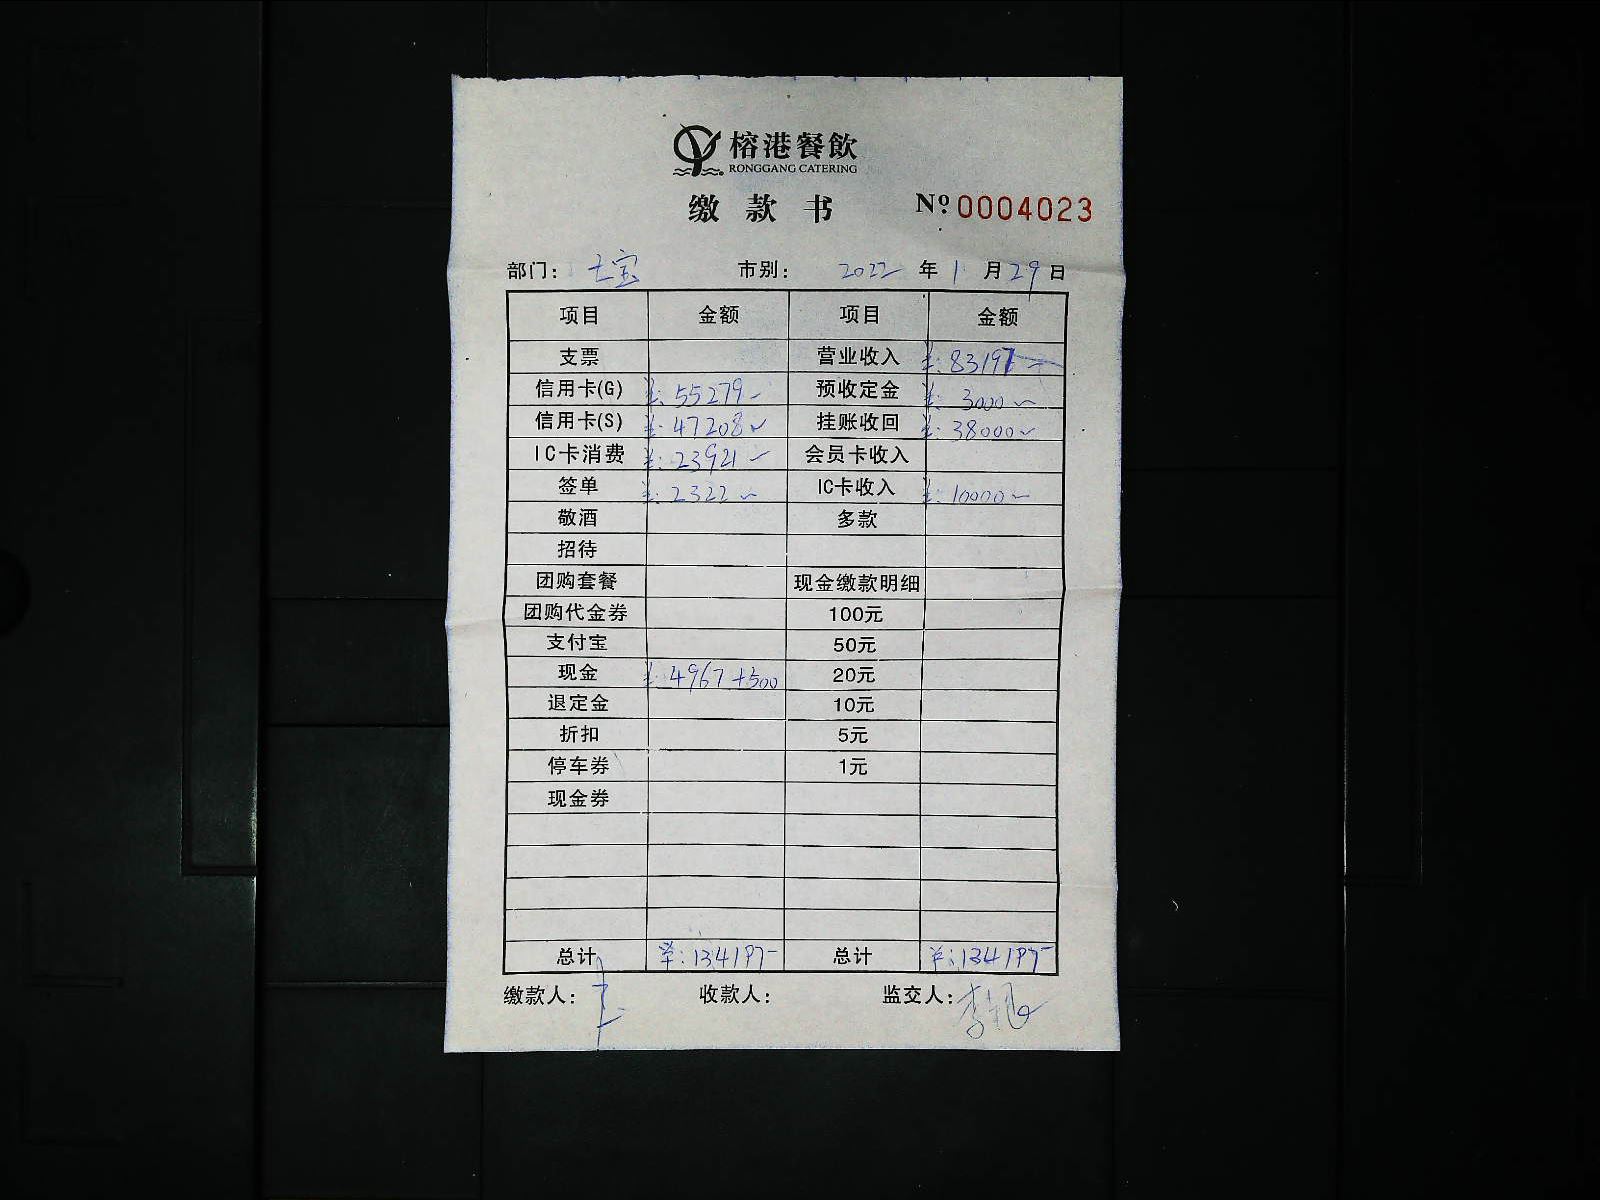 榕港餐飲
RONGGANG CATERING
缴款书 No 0004023
部门： 七宝 市别： 2022 年 1 月 29 日
项目 金额 项目 金额
支票 营业收入 ¥:83197
信用卡(G) ¥:55279 预收定金 ¥:3000
信用卡(S) ¥:47208 挂账收回 ¥:38000
IC卡消费 ¥:23921 会员卡收入
签单 ¥:2322 IC卡收入 ¥:10000
敬酒 多款
招待
团购套餐 现金缴款明细
团购代金券 100元
支付宝 50元
现金 ¥:4967+500 20元
退定金 10元
折扣 5元
停车券 1元
现金券
总计 ¥:134197 总计 ¥:134197
缴款人： 收款人： 监交人：